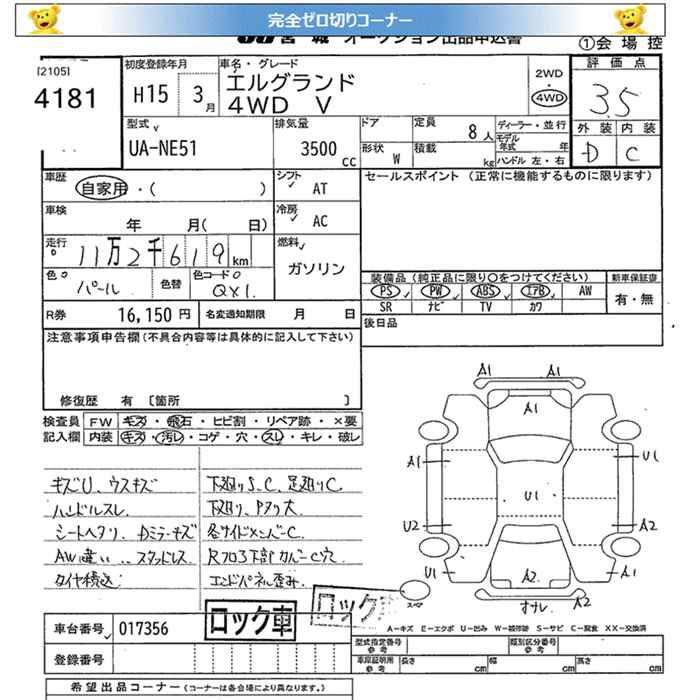 完全ゼロ切りコーナー
JU宮城 オークション出品申込書
①会場控
[2105]
4181
初度登録年月
H15 3月
車名・グレード
エルグランド
4WD V
2WD
・
4WD
評価点
3.5
外装 内装
D C
型式
UA-NE51
排気量
3500cc
ドア
形状 W
定員 8人
積載 kg
ディーラー・並行
モデル年式 年
ハンドル 左・右
車歴
自家用・( )
シフト AT
車検
年 月( 日)
冷房 AC
走行
11万2千619km
燃料
ガソリン
色
パール
色替
色コード
QX1
R券 16,150円
名変通知期限 月 日
セールスポイント (正常に機能するものに限ります)
装備品 (純正品に限り〇をつけてください)
PS PW ABS エアB AW
SR ナビ TV カワ
新車保証書
有・無
後日品
注意事項申告欄(不具合内容等は具体的に記入して下さい)
修復歴 有 〔箇所 〕
検査員 FW キズ・飛石・ヒビ割・リペア跡・×要
記入欄 内装 キズ・汚レ・コゲ・穴・スレ・キレ・破レ
キズU、ウスキズ
ハンドルスレ
シートヘタリ、Dミラーキズ
AW違い、スタッドレス
タイヤ積込
下廻りS、C、足廻りC
下廻り、Pタリ大
各サイドメンバーC
Rフロア下部カバーC穴
エンドパネル歪み
A1 A1
A1
A1 U1
U1
U2 A2
U1 A1
A2
オサレ A2
スペア
A-キズ E-エクボ U-凹み W-補修跡 S-サビ C-腐食 XX-交換済
ロック車
ロック車
車台番号 017356
登録番号
型式指定番号 参考
類別区分番号 参考
車庫証明用 参考 長さ cm 幅 cm 高さ cm
希望出品コーナー (コーナーは各会場により異なります。)